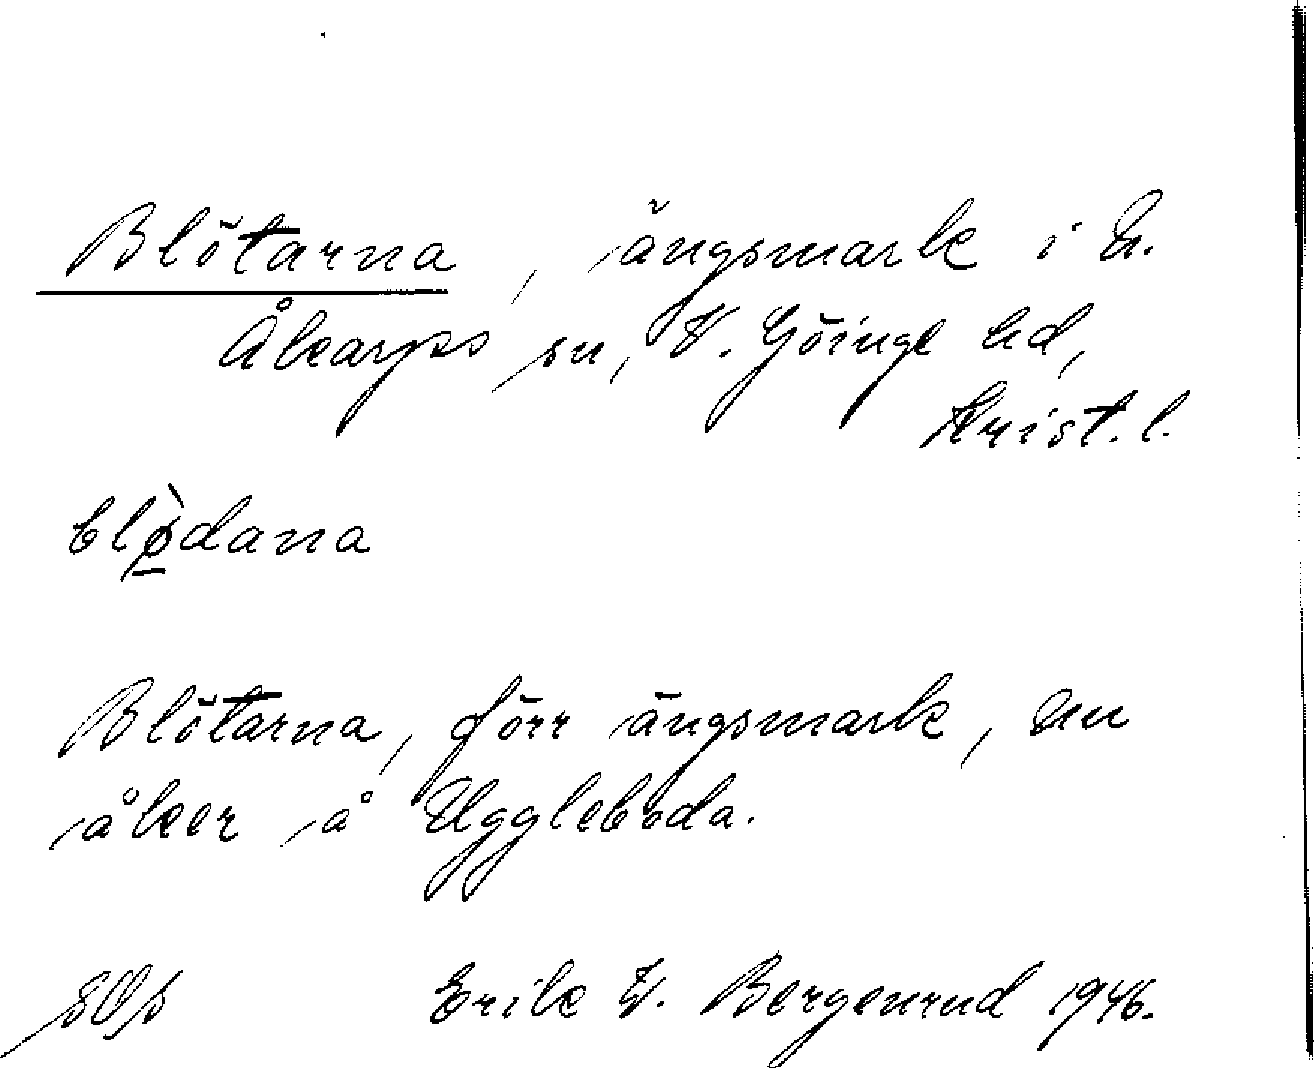 Blötarna, ängsmark i N.
Åkarps sn, V. Göinge hd,
Krist. l.
blø̱̀dana
Blötarna, förr ängsmark, nu
åker å Uggleboda.
Erik W. Bergenrud 1946.